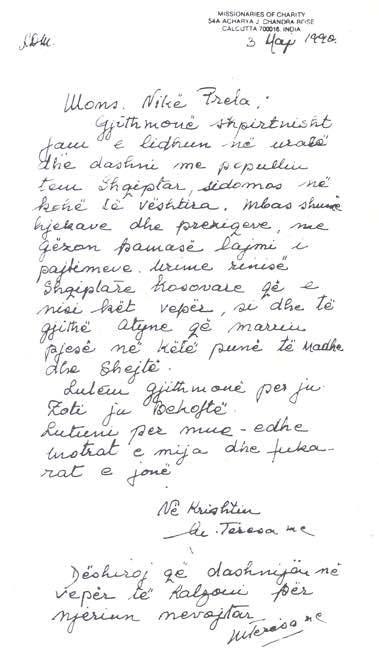 MISSIONARIES OF CHARITY
54A ACHARYA J. CHANDRA BOSE
CALCUTTA 700016, INDIA
3 Maj 1990.
L.D.M.
Mons. Nikë Prela,
Gjithmonë shpirtnisht
jam e lidhun në uratë
dhe dashni me popullin
tem Shqiptar, sidomos në
kohë të vështira. Mbas shumë
hjekave dhe prexigeve, me
gëzon pamasë lajmi i
pajtimeve. Urime rinisë
Shqiptare Kosovare që e
nisi két vepër, si dhe të
gjithë atyne që marrin
pjesë në këtë punë të Madhe
dhe Shejtë.
Lutem gjithmonë per ju
Zoti ju Bekoftë.
Lutuni per mue - edhe
motrat e mija dhe fuka-
rat e jonë
Në Krishtin
M. Teresa mc
Dëshiroj që dashnija në
vepër të kalzoni për
njeriun nevojtar
M Teresa mc